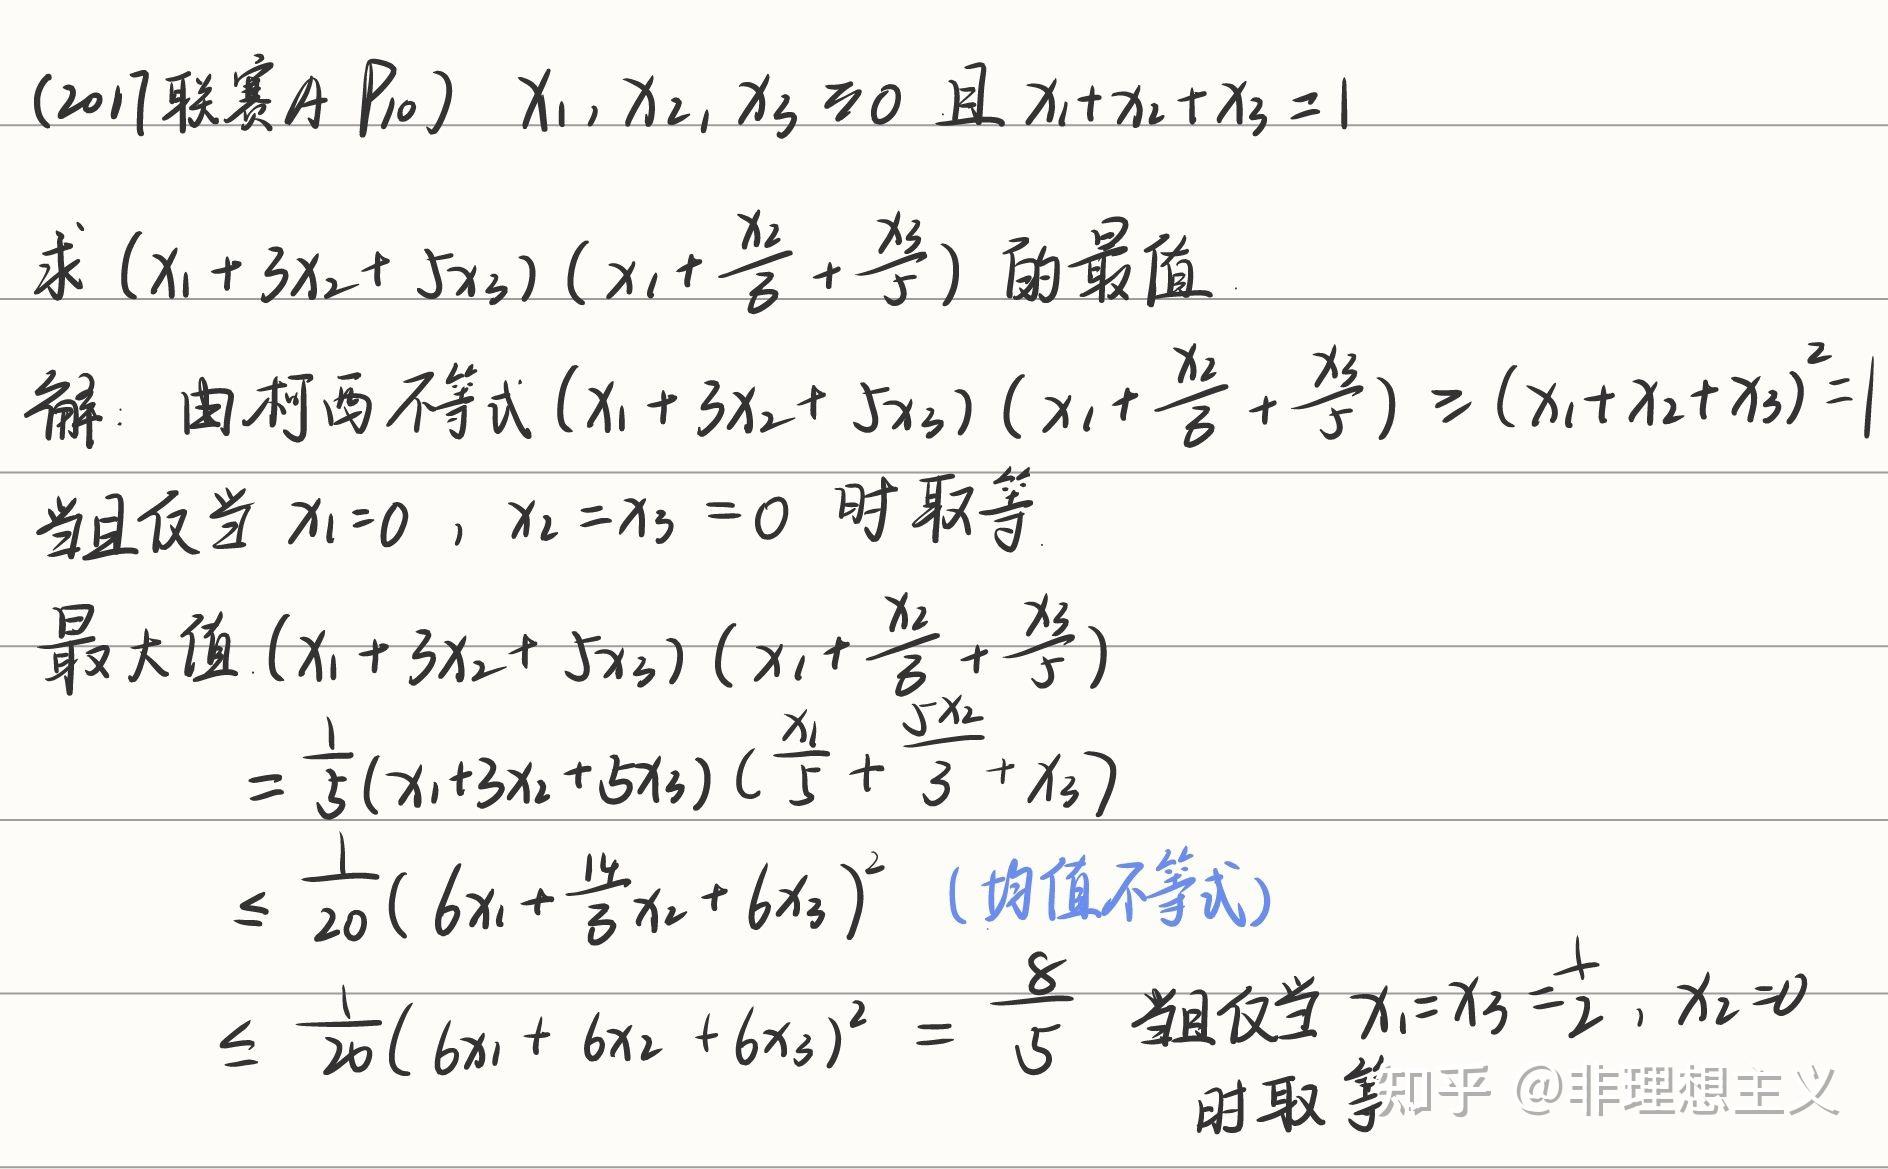 (2017联赛A P₁₀) x₁, x₂, x₃ ≥ 0 且 x₁+x₂+x₃ = 1
求 (x₁+3x₂+5x₃)(x₁+x₂/3+x₃/5) 的最值.
解: 由柯西不等式 (x₁+3x₂+5x₃)(x₁+x₂/3+x₃/5) ≥ (x₁+x₂+x₃)² = 1
当且仅当 x₁=0, x₂=x₃=0 时取等.
最大值. (x₁+3x₂+5x₃)(x₁+x₂/3+x₃/5)
= 1/5(x₁+3x₂+5x₃)(x₁/5+5x₂/3+x₃)
≤ 1/20(6x₁+14/3x₂+6x₃)² (均值不等式)
≤ 1/20(6x₁+6x₂+6x₃)² = 8/5 当且仅当 x₁=x₃=1/2, x₂=0
时取等
知乎 @非理想主义